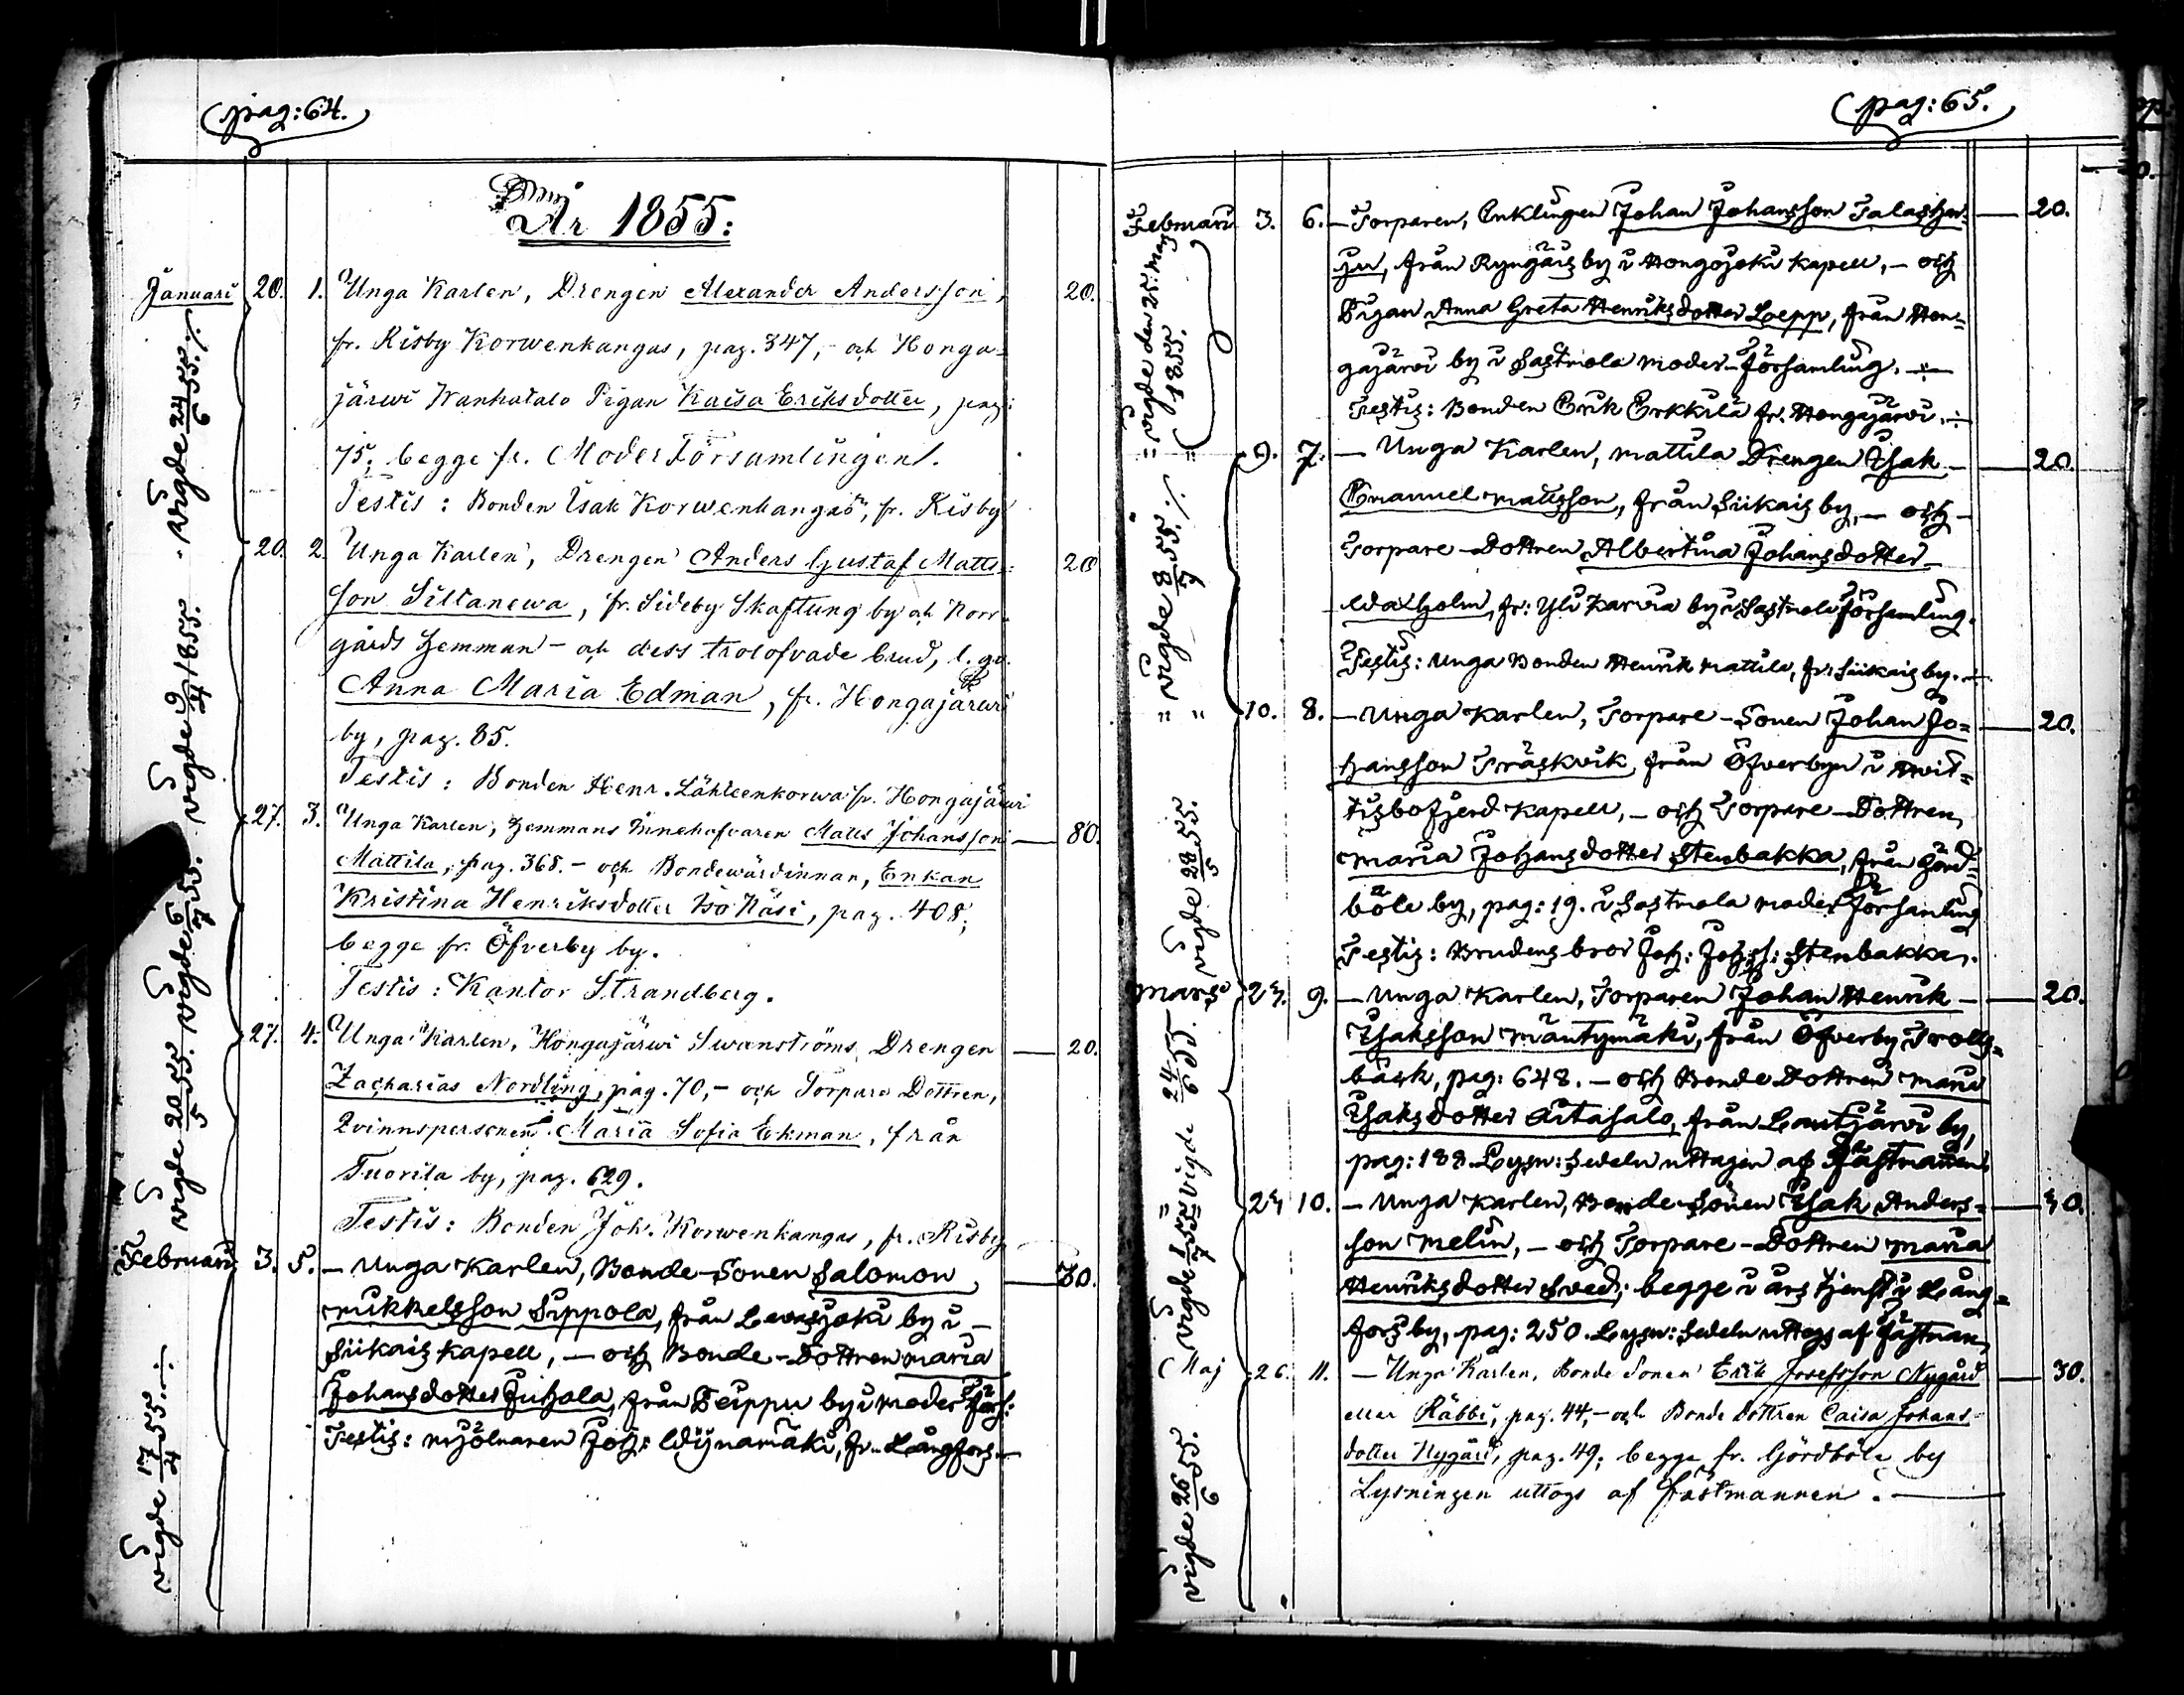 pag: 64.
År 1855:
Januari 20. 1. Unga Karlen, Drengen Alexander Andersson, 20.
fr. Kisby Korwenkangas, pag. 347, - och Honga-
järwi Wanhatalo Pigan Kaisa Eriksdotter, pag:
75, begge fr. Moder Församlingen.
Testis: Bonden Isak Korwenkangas, fr. Kisby
Vigde 24/6 55. ./.
20. 2. Unga Karlen, Drengen Anders Gustaf Matts- 20
son Sillanewa, fr. Sideby Skaftung by och Norr-
gårds hemman - och dess trolofvade brud,
Anna Maria Edman, fr. Hongajärwi
by, pag. 85.
Testis: Bonden Henr. Lähteenkorwa fr. Hongajärwi
Vigde 9/4 1855.
27. 3. Unga Karlen, hemmans Innehafvaren Matts Johansson 80.
Mattila, pag. 368. - och Bondewärdinnan, Enkan
Kristina Henriksdotter Iso Näsi, pag. 408;
begge fr. Öfverby by.
Testis: Kantor Strandberg.
Vigde 6/7 55.
27. 4. Unga Karlen, Hongajärwi Swanströms Drengen 20.
Zacharias Nordling, pag. 70, - och Torpare Dottren,
Qvinnspersonen Maria Sofia Ekman, från
Tuorila by, pag. 629.
Testis: Bonden Joh. Korwenkangas, fr. Kisby
Vigde 20/5 55.
Februari 3. 5. - Unga Karlen, Bonde-Sonen Salomon 30.
Mikkelsson Sippola, från Leväsjoki by i -
Siikais kapell, - och Bonde-Dottren Maria
Johansdotter Juhola, från Peippu by i Moder Förs:
Testis: Mjölnaren Joh: Wijnamäki, fr. Långfors. -
Vigde 17/4 55 ./.
pag: 65.
Februari 3. 6. - Torparen, Enklingen Johan Johansson Talashar- 20.
ju, från Ryngäis by i Hongojoki kapell, - och
Pigan Anna Greta Henriksdotter Lepp, från Hon-
gajärwi by i Sastmola Moder-Församling. ./.
Testis: Bonden Erik Erkkilä fr. Hongajärwi. ./.
= Vigde den 25: Maj
1855.
" " 9. 7. - Unga Karlen, Mattila Drengen Isak - 20.
Emanuel Mattsson, från Siikais by, - och -
Torpare-Dottren Albertina Johansdotter -
Waxholm, fr: Yli Karvia by i Sastmola Församling.
Testis: Unga Bonden Henrik Mattila, fr: Siikais by. -
Vigde 8/7 55. ./.
" " 10. 8. - Unga Karlen, Torpare-Sonen Johan Jo- 20.
hansson Träskvik, från Öfverbyn i Hvit-
tisbofjerd Kapell, - och Torpare-Dottren,
Maria Johansdotter Stenbakka, från Görd-
böle by, pag: 19. i Sastmola Moder Församling
Testis: Brudens bror Joh: Johss: Stenbakka.
Vigde 28/5 55.
Mars 24. 9. - Unga Karlen, Torparen Johan Henrik - 20.
Isaksson Mäntymäki, från Öfverby Trolls-
bäck, pag: 648. - och Bonde Dottren Maria
Isaksdotter Aitasalo, från Lautjärwi by,
pag: 188. Lysn: Sedeln uttagen af Fästmannen
Vigde 24/6 55.
24 10. - Unga Karlen, Bonde-Sonen Isak Anders- 40.
son Melin, - och Torpare-Dottren Maria
Henriksdotter Sved; begge i års tjenst i Lång-
fors by, pag: 250. Lysn: Sedeln uttogs af Fästman,
Vigde 1/7 55
Maj 26. 11. - Unga Karlen, Bonde Sonen Erik Josefsson Nygård 30.
eller Räbbi, pag. 44, - och Bonde Dottren Caisa Johans-
dotter Nygård, pag. 49; begge fr. Gördböle by
Lysningen uttogs af Fästmannen. -
Vigde 26/6 55.